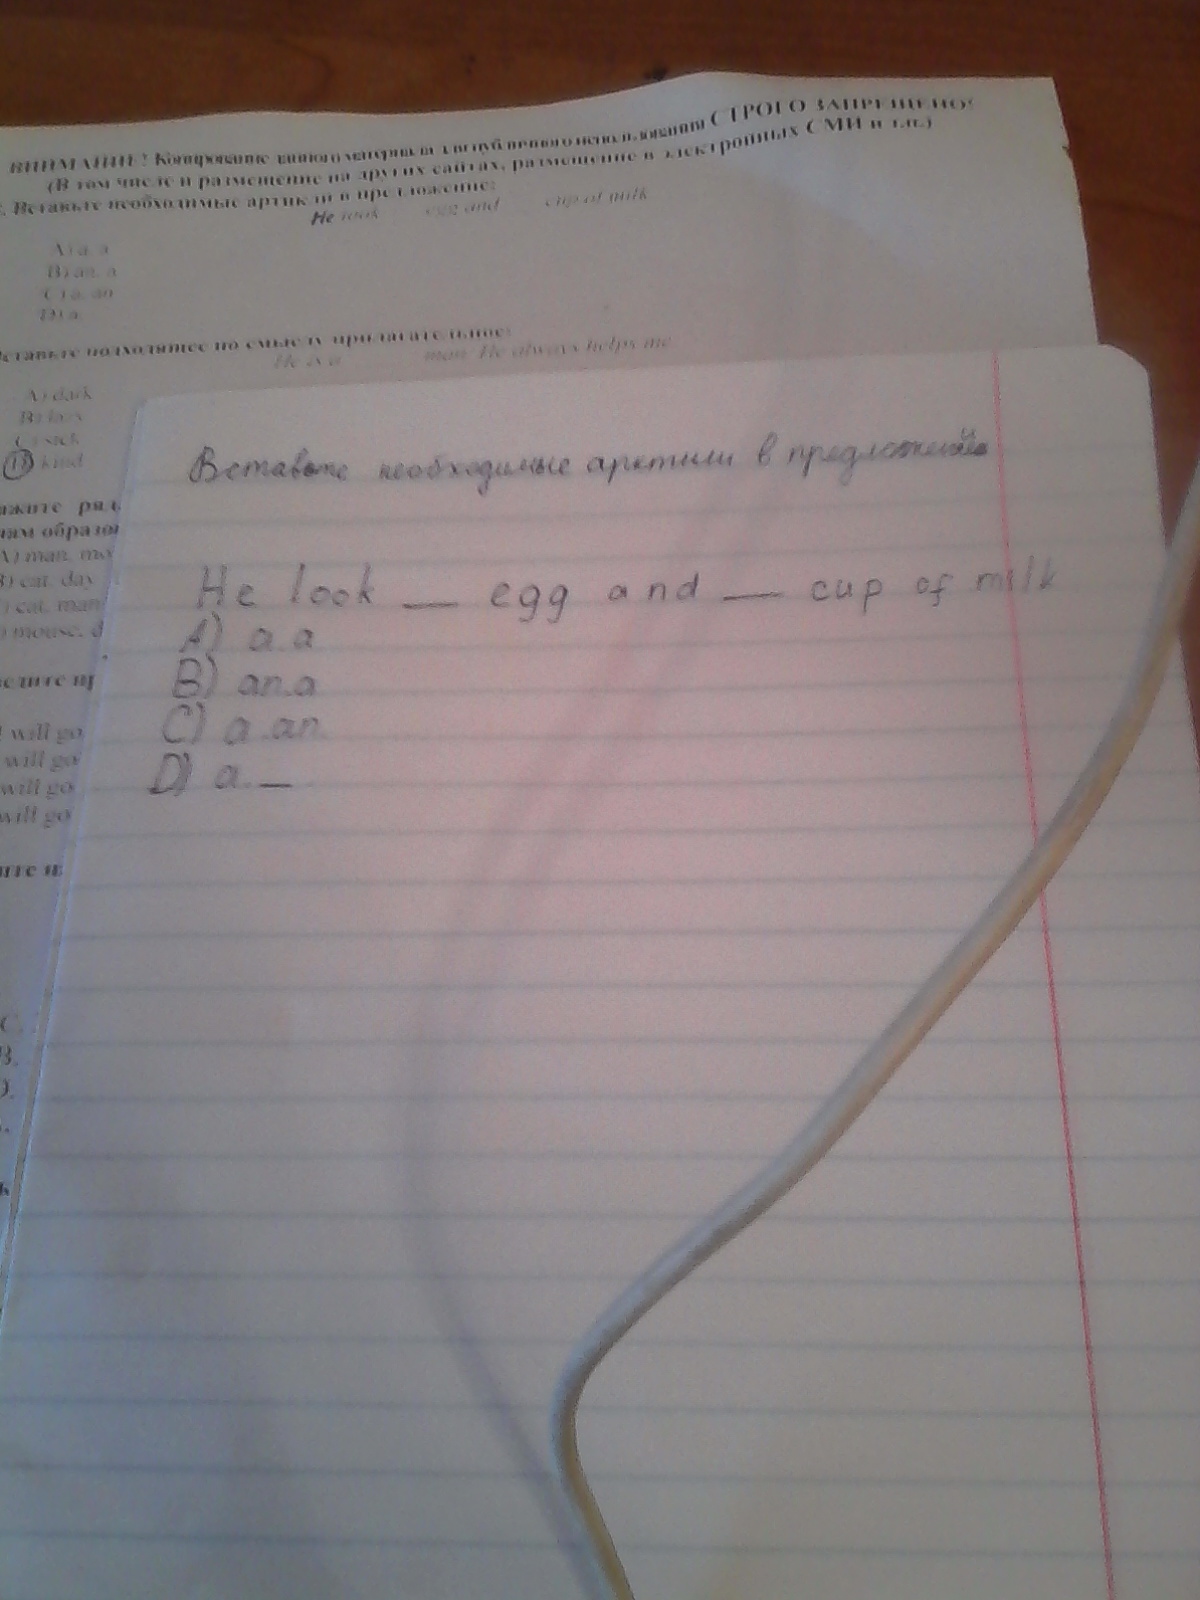 ВНИМАНИЕ! Копирование данного материала для публичного использования СТРОГО ЗАПРЕЩЕНО!
(В том числе и размещение на других сайтах, размещение в электронных СМИ и т.п.)
Вставьте необходимые артикли в предложение:
He took egg and cup of milk
A) a, a
B) an, a
C) a, an
D) a
Вставьте подходящее по смыслу прилагательное:
He is a man. He always helps me
A) dark
B)
C) sick
D) kind
ажите ряд
A) man, mo
B) cat, day
) cat, man
) mouse, d
will go
will go
will go
will go
C.
B.
D.
Вставьте необходимые арктили в предложений
He look __ egg and __ cup of milk
A) a.a
B) an.a
C) a.an
D) a. _